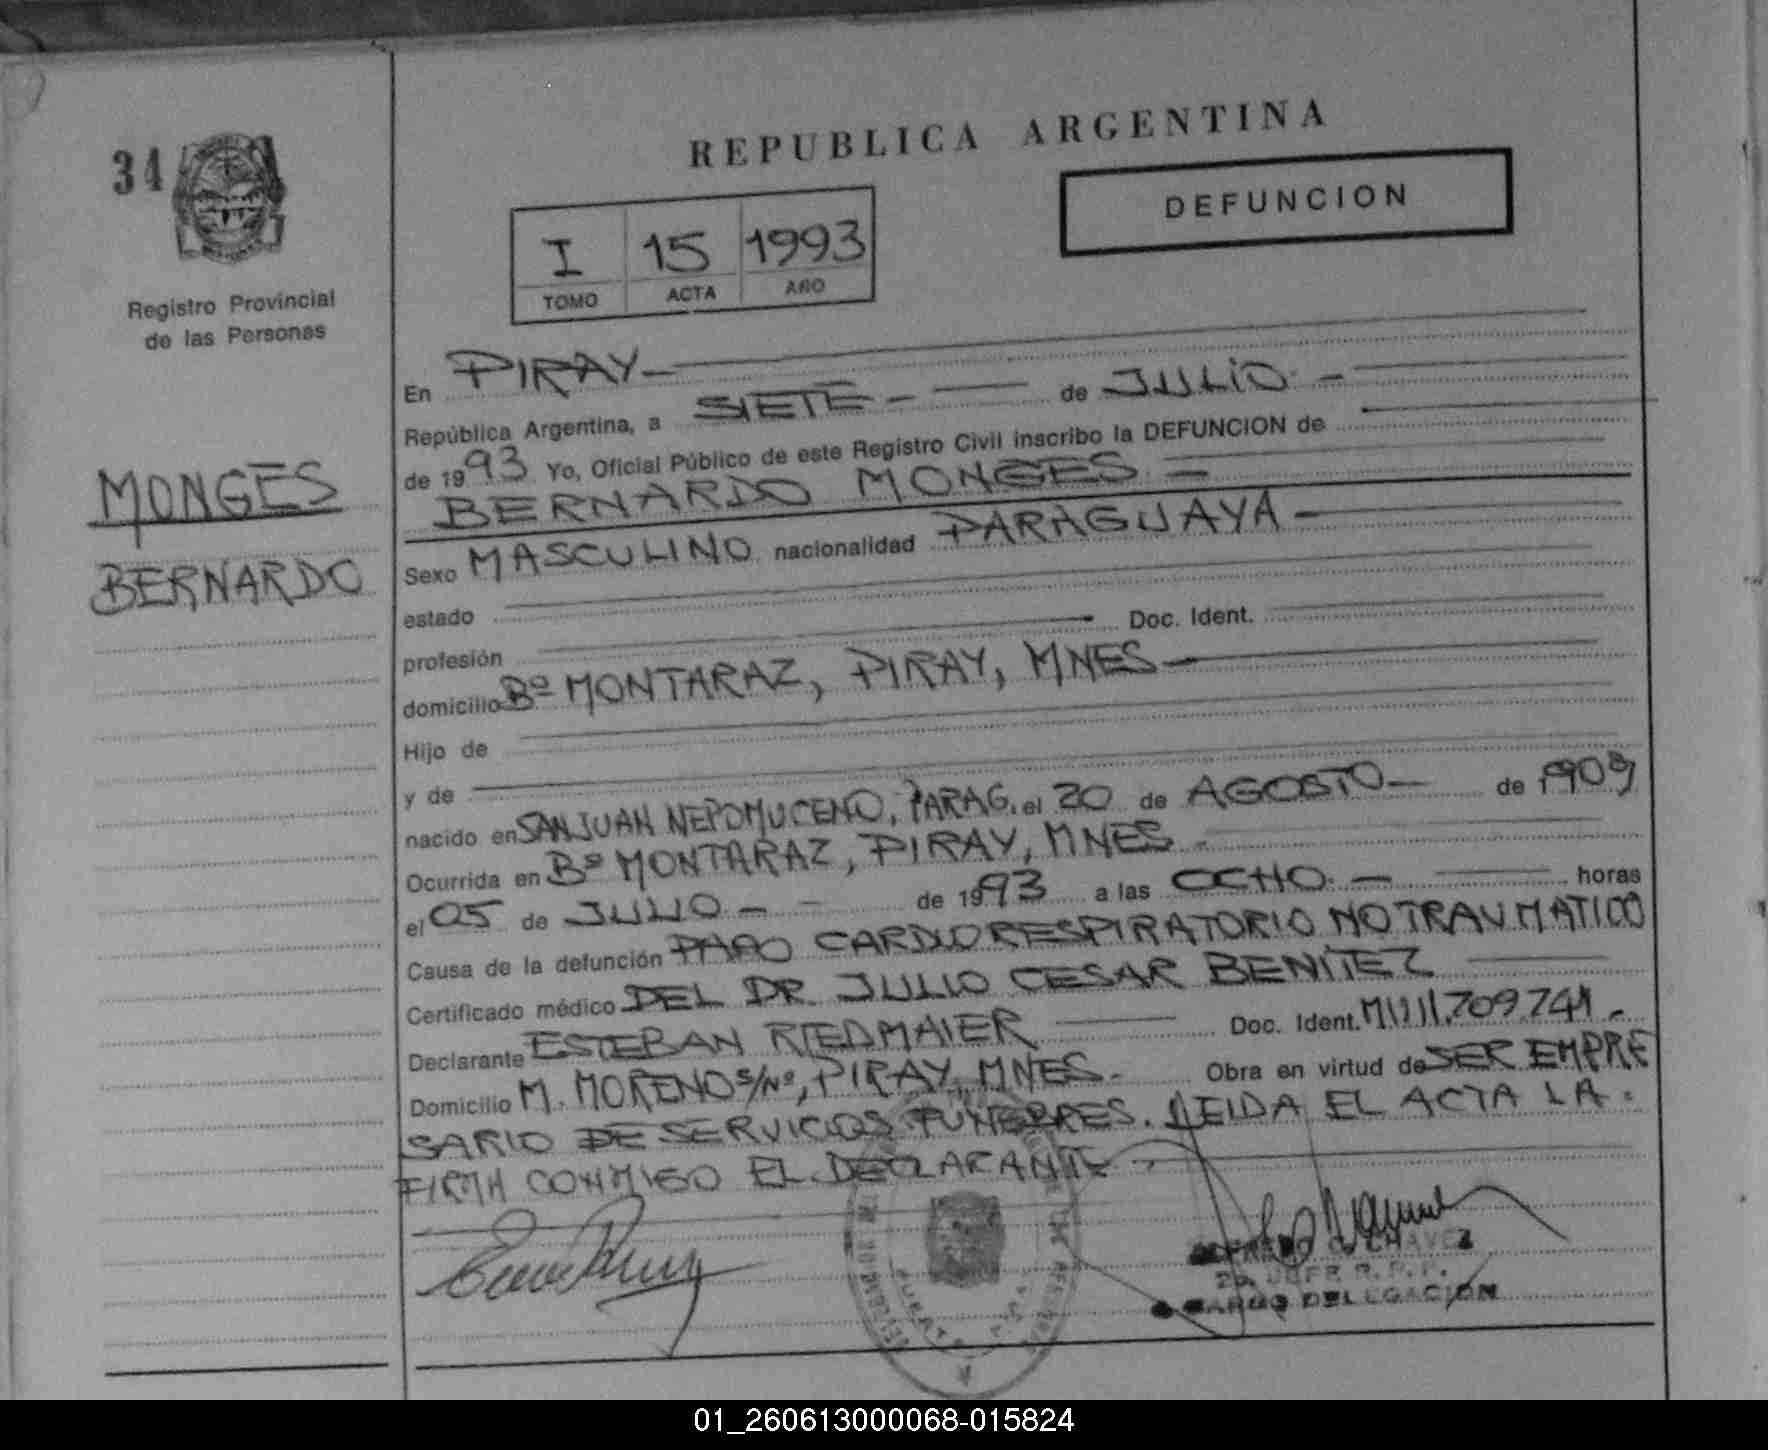 REPUBLICA ARGENTINA
34
DEFUNCION
I 15 1993
TOMO ACTA AÑO
Registro Provincial
de las Personas
En PIRAY
República Argentina, a SIETE de JULIO
de 1993 Yo, Oficial Público de este Registro Civil inscribo la DEFUNCION de
MONGES
BERNARDO MONGES
BERNARDO
Sexo MASCULINO nacionalidad PARAGUAYA
estado
profesión Doc. Ident.
domicilio Bº MONTARAZ, PIRAY, MNES
Hijo de
y de
nacido en SAN JUAN NEPOMUCENO, PARAG. el 20 de AGOSTO de 1909
Ocurrida en Bº MONTARAZ, PIRAY, MNES
el 05 de JULIO de 1993 a las OCHO horas
Causa de la defunción PARO CARDIORESPIRATORIO NO TRAUMATICO
Certificado médico DEL DR. JULIO CESAR BENITEZ
Declarante ESTEBAN RIEDMAIER Doc. Ident.
Domicilio M. MORENO S/Nº, PIRAY, MNES. Obra en virtud de SER EMPRE
SARIO DE SERVICIOS FUNEBRES. LEIDA EL ACTA LA
FIRMA CONMIGO EL DECLARANTE
CHAVEZ
2o. JEFE R.P.P.
CARGO DELEGACION
01_260613000068-015824